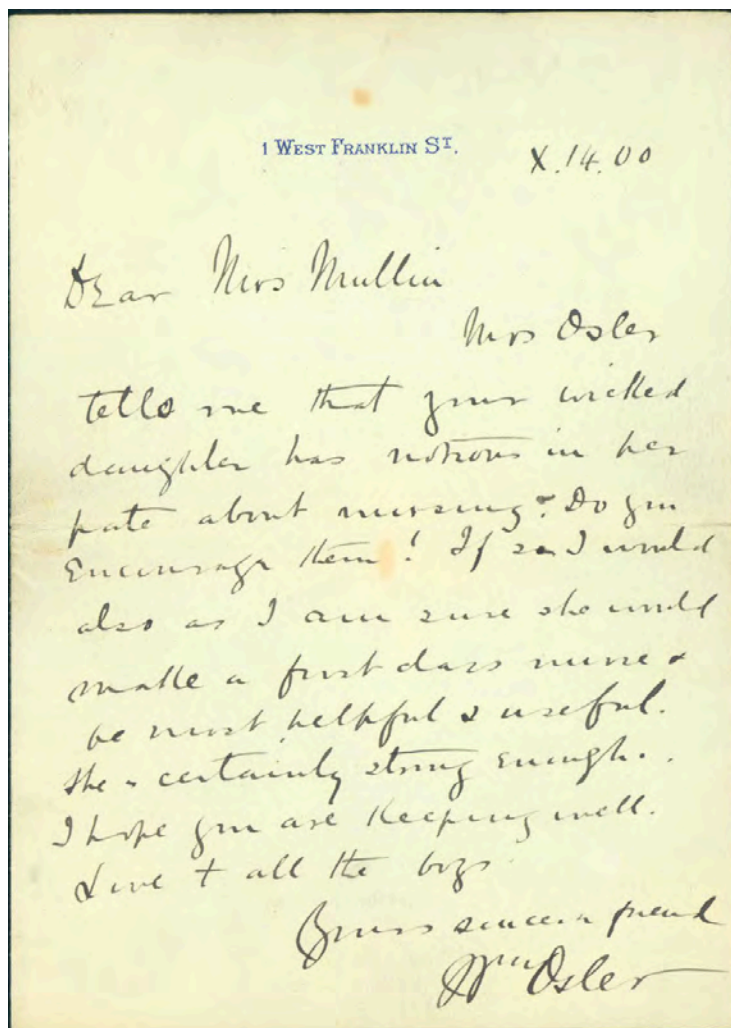 1 WEST FRANKLIN ST.
X.14.00
Dear Mrs Mullin
Mrs Osler
tells me that your wicked
daughter has notions in her
pate about nursing. Do you
Encourage them! If so I would
also as I am sure she would
make a first class nurse &
be most helpful & useful.
She is certainly strong Enough.
I hope you are Keeping well.
Love to all the boys
Yours sincere friend
Wm Osler